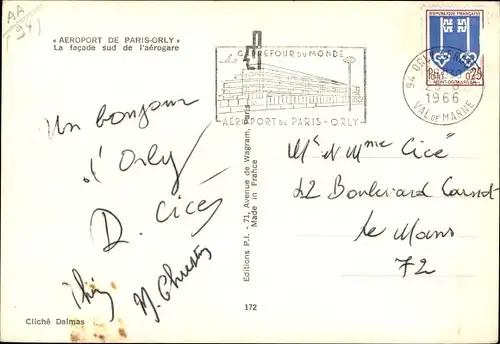 AA
94)
« AEROPORT DE PARIS-ORLY »
La façade sud de l'aérogare
Un bonjour
d'Orly
D. Cicé
M. Christ
Cliché Dalmas
Editions P.I. - 71, Avenue de Wagram, Paris
Made in France
172
CARREFOUR DU MONDE
AÉROPORT DE PARIS - ORLY
REPUBLIQUE FRANÇAISE
0,25
MONT-DE-MARSAN
94 ORLY
1966
VAL DE MARNE
Mr et Mme Cicé
42 Boulevard Carnot
Le Mans
72